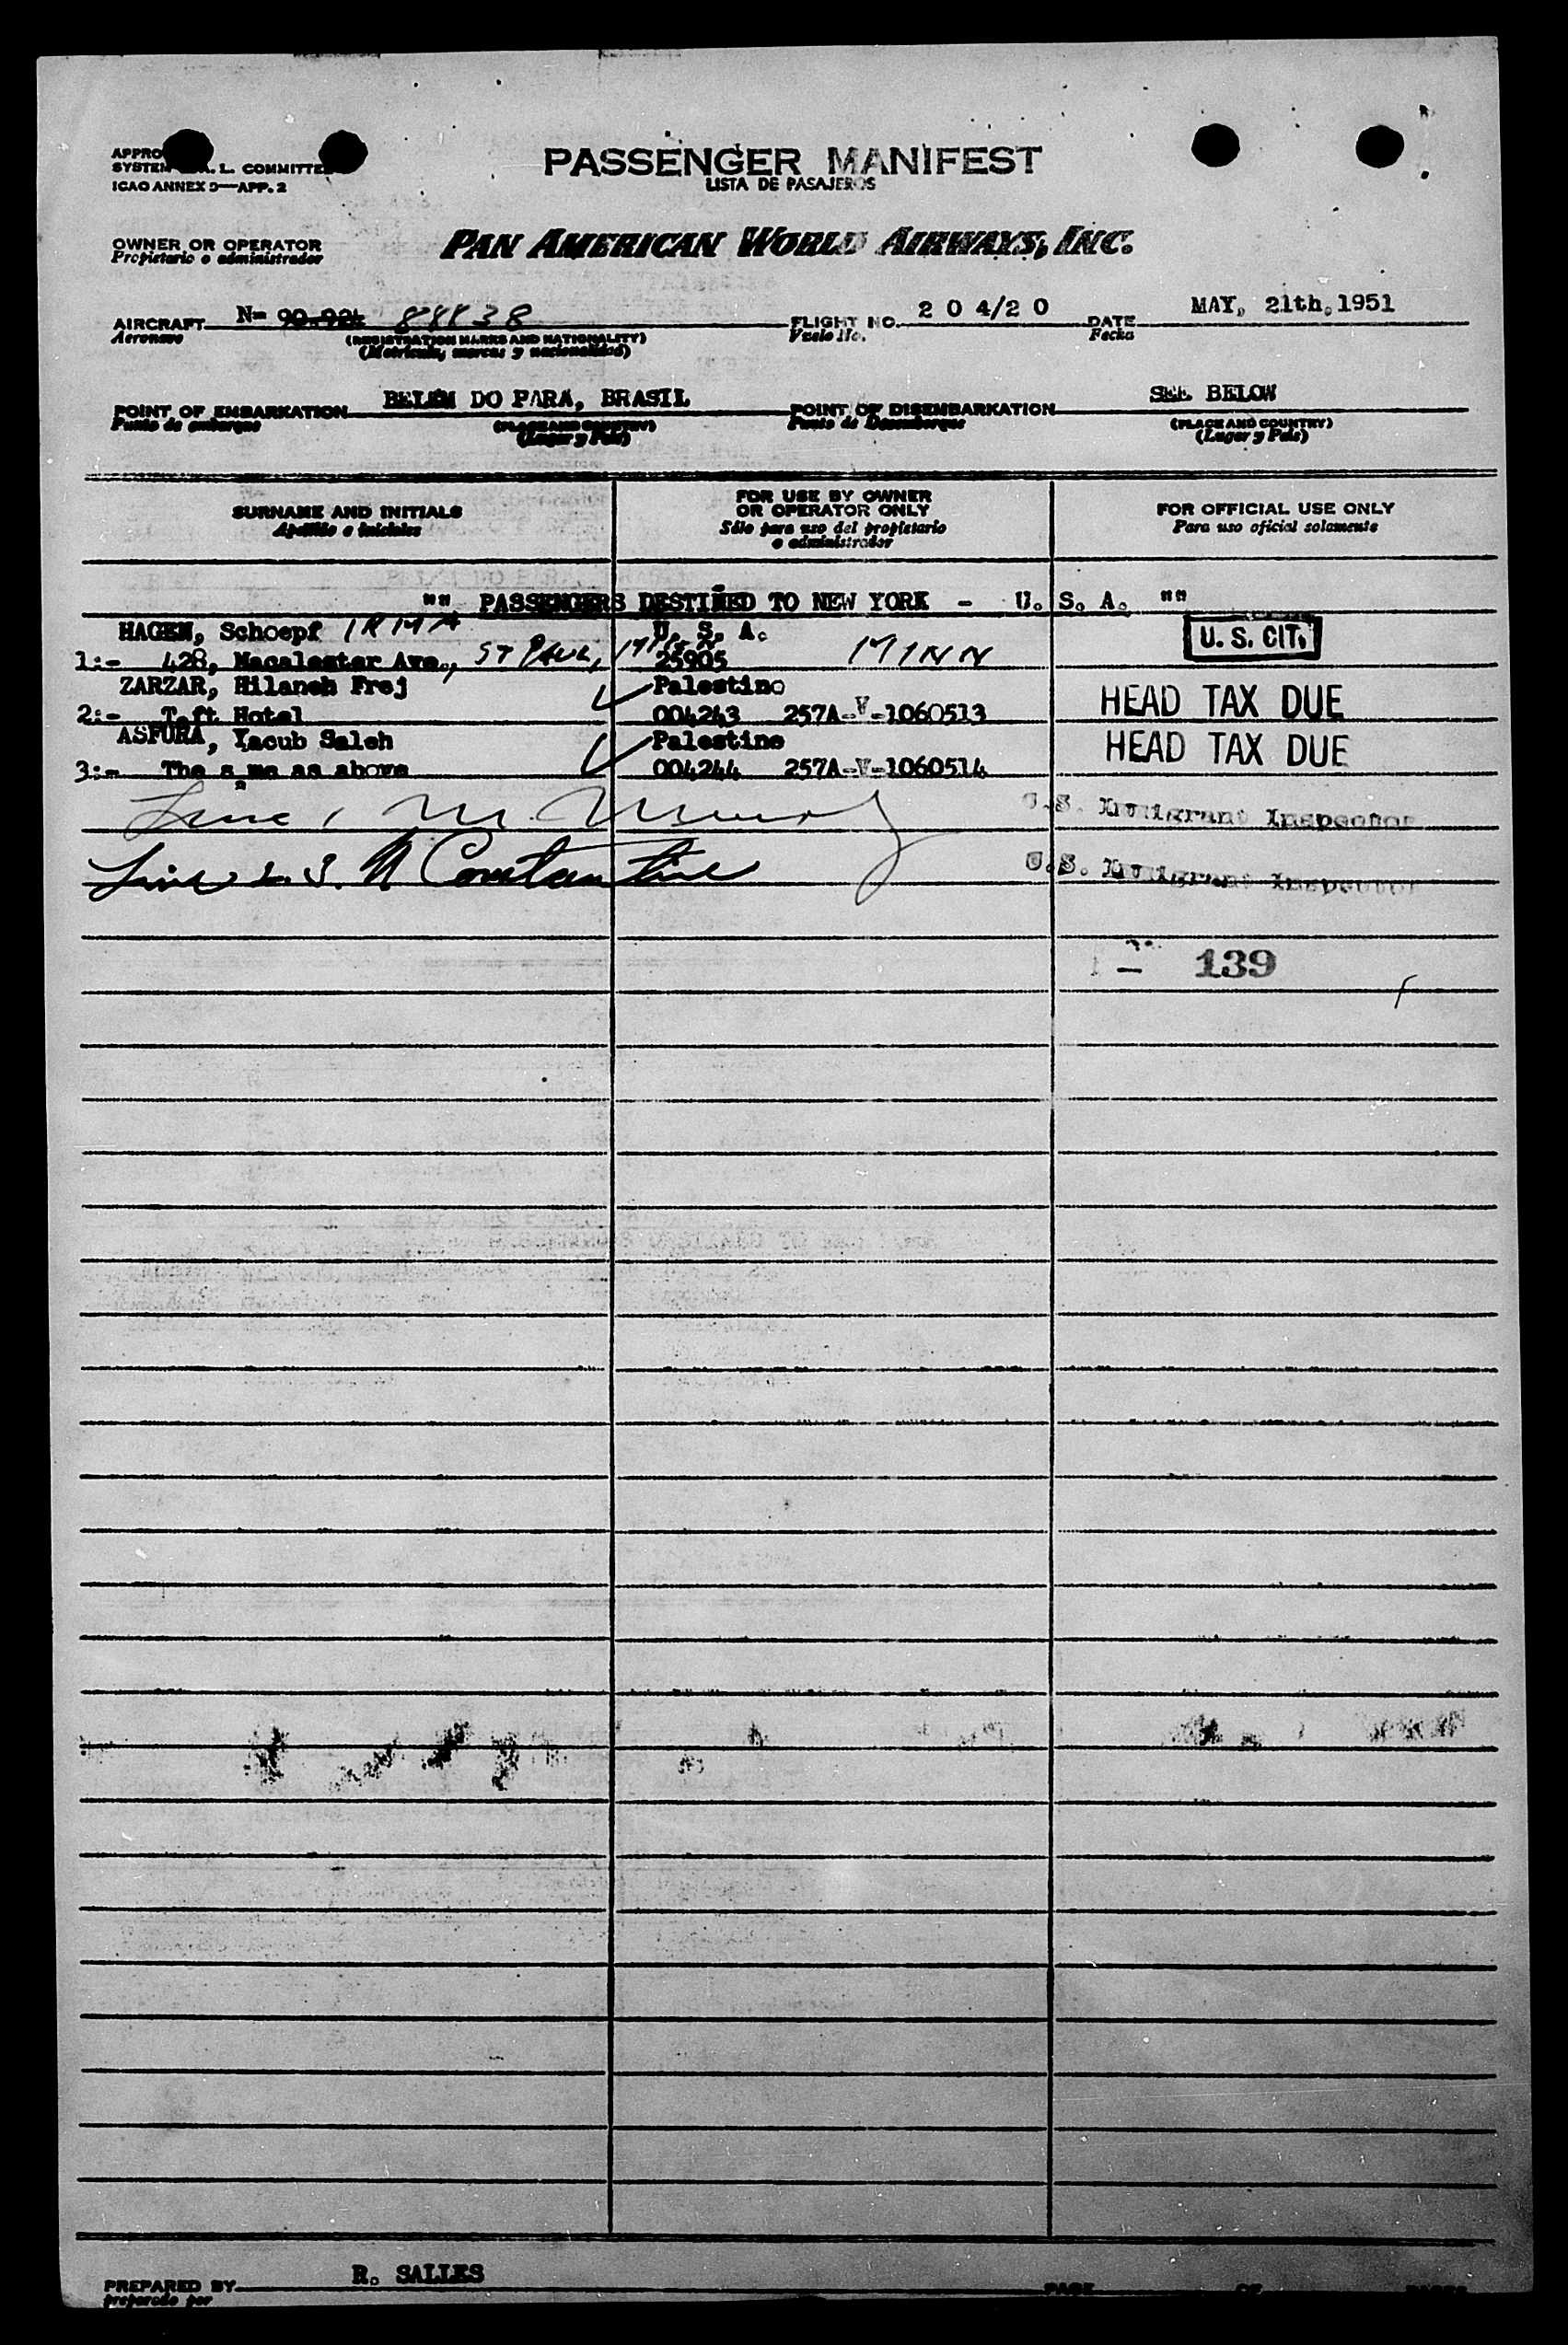 PASSENGER MANIFEST
LISTA DE PASAJEROS
APPRO
SYSTEM L. COMMITTEE
ICAO ANNEX 9—APP. 2
OWNER OR OPERATOR
Propietario o administrador
PAN AMERICAN WORLD AIRWAYS, INC.
AIRCRAFT N- 90-924 88838 FLIGHT NO. 2 0 4/2 0 DATE MAY, 21th. 1951
Aeronave (REGISTRATION MARKS AND NATIONALITY) Vuelo No. Fecha
(Matricula, marcas y nacionalidad)
POINT OF EMBARKATION BELEM DO PARA, BRASIL POINT OF DISEMBARKATION SEE BELOW
Punto de embarque (PLACE AND COUNTRY) Punto de Desembarque (PLACE AND COUNTRY)
(Lugar y País) (Lugar y País)
SURNAME AND INITIALS
Apellido e iniciales
FOR USE BY OWNER
OR OPERATOR ONLY
Sólo para uso del propietario
o administrador
FOR OFFICIAL USE ONLY
Para uso oficial solamente
"" PASSENGERS DESTINED TO NEW YORK - U. S. A. ""
HAGEN, Schoepf IRMA U. S. A. U. S. CIT.
1:- 428, Macalester Ave., ST PAUL, MINN 25905 MINN
ZARZAR, Hilaneh Frej Palestino
2:- Taft Hotel 004243 257A-V-1060513 HEAD TAX DUE
ASFURA, Yacub Saleh Palestino HEAD TAX DUE
3:- The same as above 004244 257A-V-1060514
U.S. Immigrant Inspector
U.S. Immigrant Inspector
139
PREPARED BY R. SALLES PAGE OF PAGES
preparado por